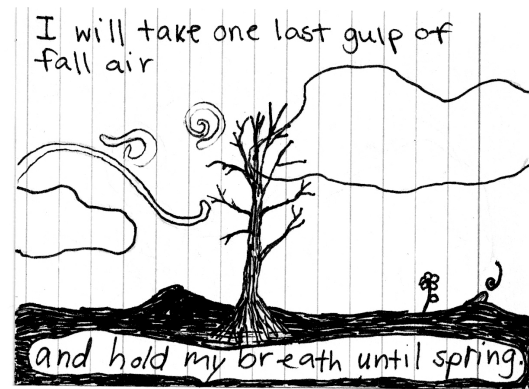 I will take one last gulp of
fall air
and hold my breath until spring.